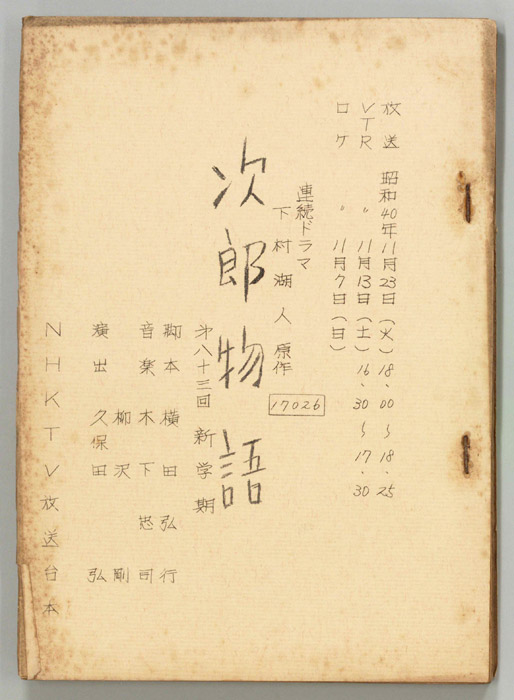 放送 昭和40年11月23日(火)18.00~18.25
VTR 〃 11月13日(土)16.30~17.30
ロケ 〃 11月7日(日)
連続ドラマ
下村湖人 原作
17026
次郎物語
第八十三回 新学期
脚本 横田弘行
音楽 木下忠司
柳沢 剛
演出 久保田 弘
NHKTV放送台本